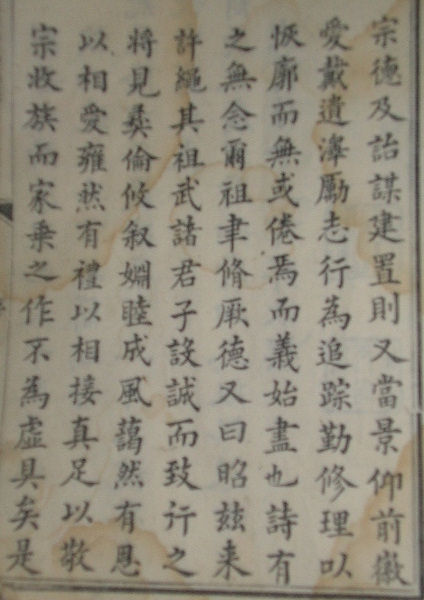 宗德及詒謀建置則又當景仰前徽
愛戴遺澤勵志行為追踪勤修理以
恢廓而無或倦焉而義始盡也詩有
之無念爾祖聿脩厥德又曰昭玆来
許繩其祖武諸君子設誠而致行之
將見彝倫攸叙婣睦成風藹然有恩
以相愛雍然有禮以相接真足以敬
宗收族而家乗之作不為虛具矣是